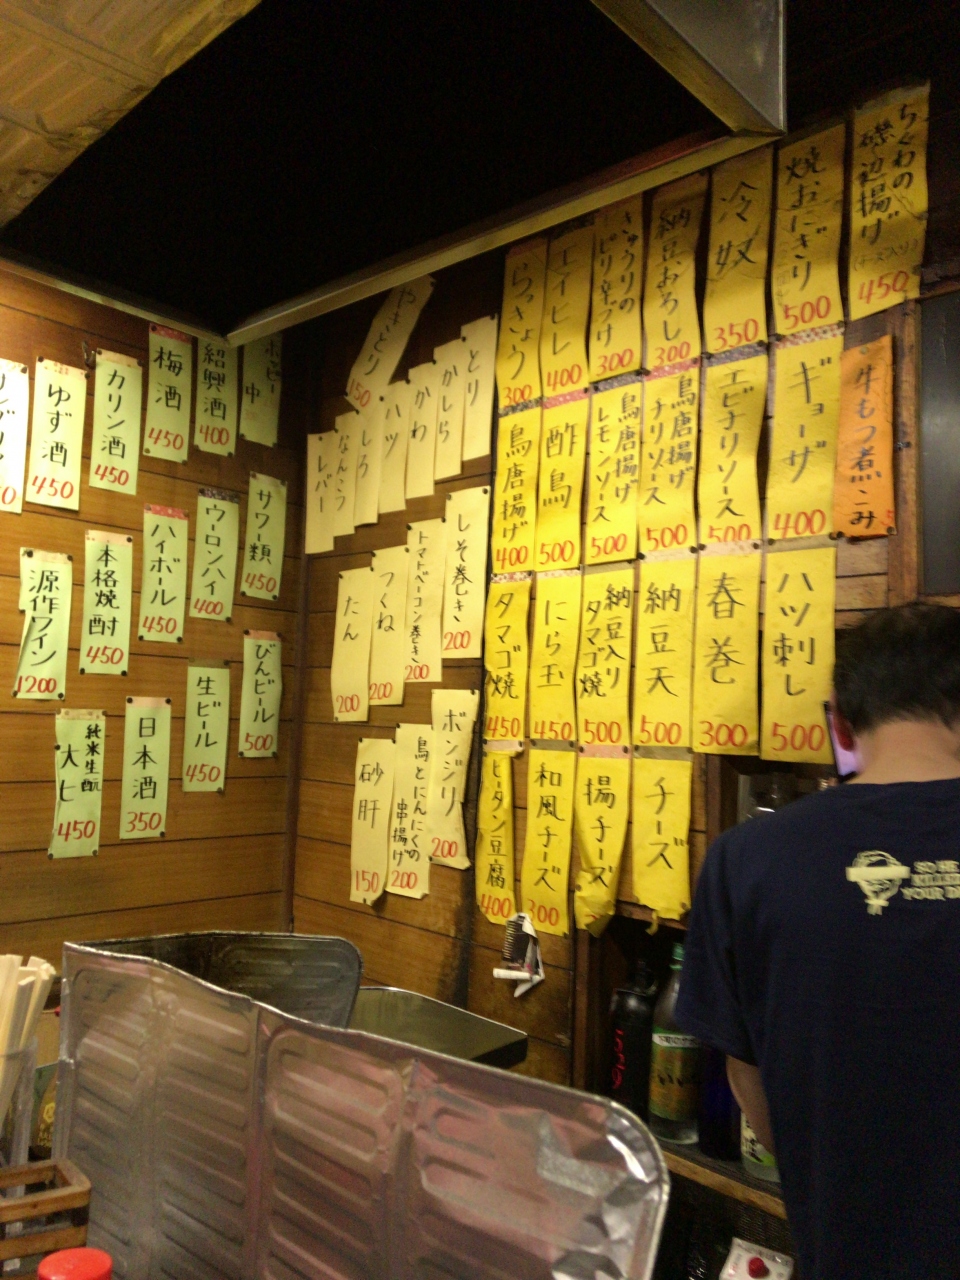 ちくわの
磯辺揚げ
(チーズ入り)
450
焼おにぎり
500
冷奴
350
納豆おろし
300
きゅうりの
ピリ辛づけ
300
エイヒレ
400
らっきょう
300
牛もつ煮こみ
ギョーザ
400
エビチリソース
500
鳥唐揚げ
チリソース
500
鳥唐揚げ
レモンソース
500
酢鳥
500
鳥唐揚げ
400
ハツ刺し
500
春巻
300
納豆天
500
納豆入り
タマゴ焼
500
にら玉
450
タマゴ焼
450
チーズ
揚チーズ
和風チーズ
300
ピータン豆腐
400
やきとり
150
とり
かしら
かわ
ハツ
しろ
なんこつ
レバー
しそ巻き
200
トマトベーコン巻き
200
つくね
200
たん
200
ボンジリ
200
鳥とにんにくの
串揚げ
200
砂肝
150
ホッピー
中
紹興酒
400
梅酒
450
カリン酒
450
ゆず酒
450
サワー類
450
ウーロンハイ
400
ハイボール
450
本格焼酎
450
源作ワイン
1200
びんビール
500
生ビール
450
日本酒
350
純米生酛
大七
450
YOUR